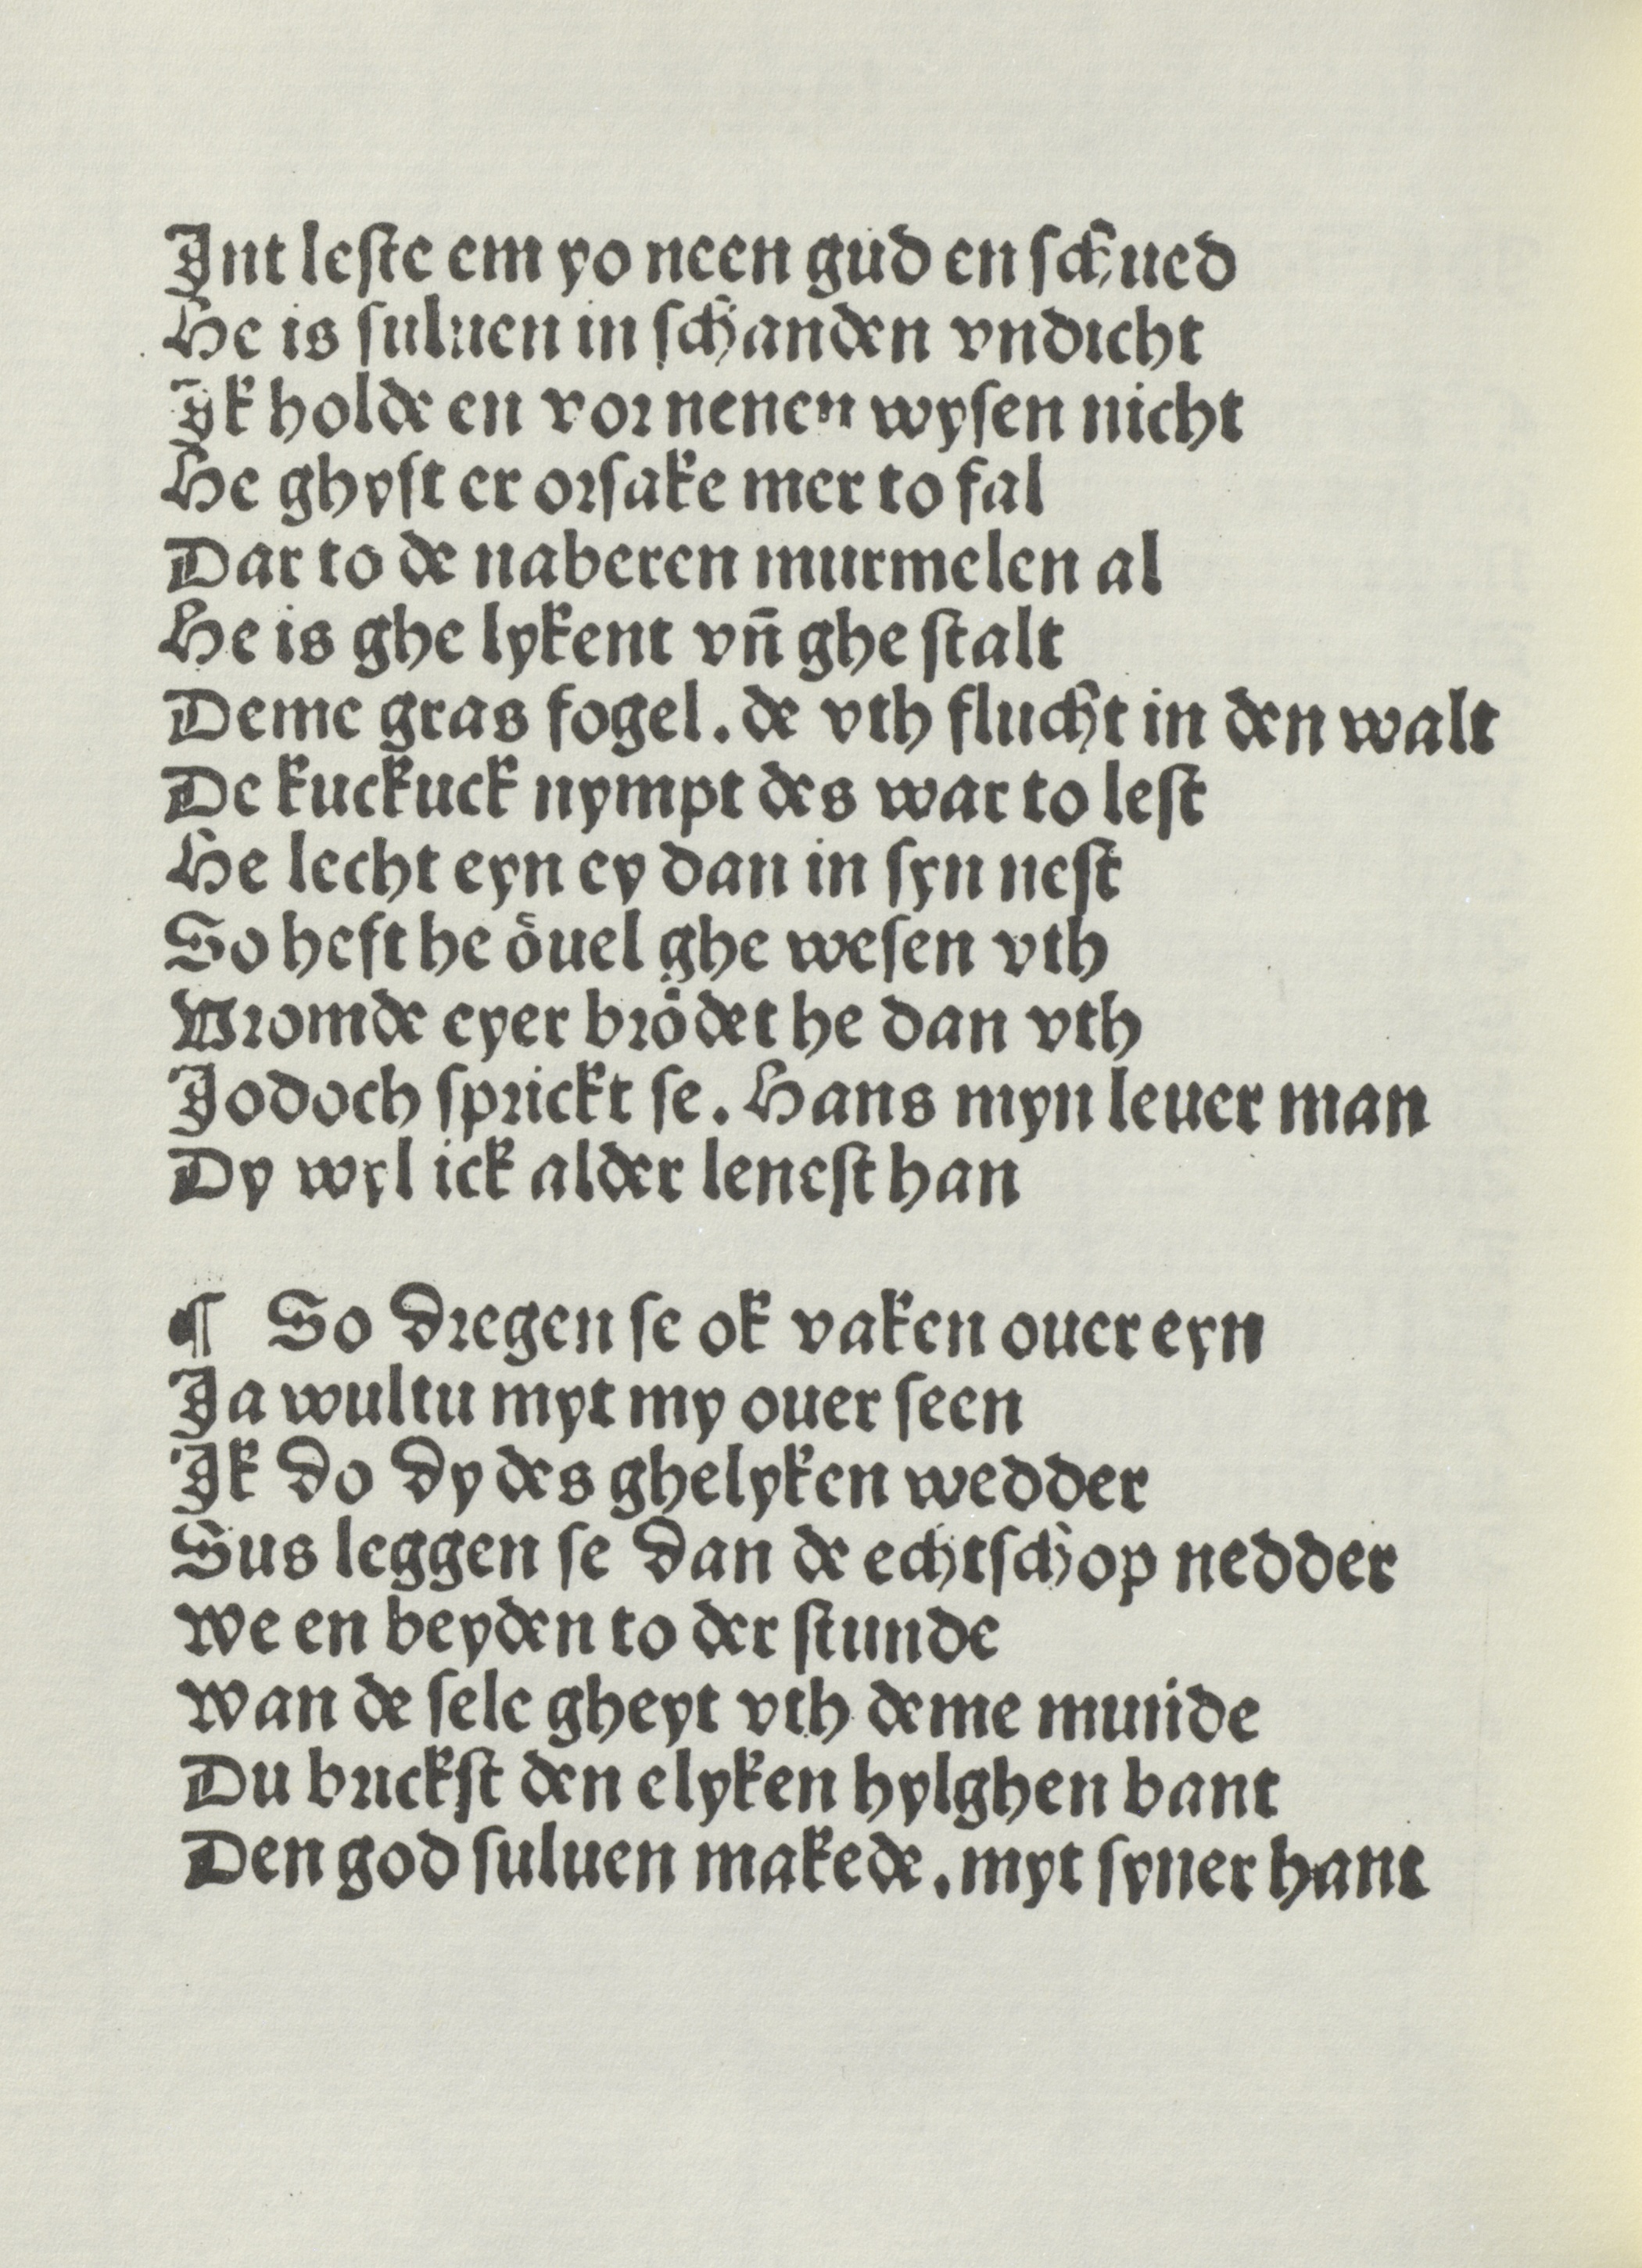 Jnt leſte em yo neen gud en ſchued
He is ſuluen in ſchanden vndicht
Jk holde en vor nenen wyſen nicht
He ghyft er orſake mer to fal
Dar to de naberen murmelen al
He is ghe lykent vñ ghe ſtalt
Deme gras fogel. de vth flucht in den walt
De kuckuck nympt des war to leſt
He lecht eyn ey dan in ſyn neſt
So heft he oͤuel ghe weſen vth
Vromde eyer broͤdet he dan vth
Jodoch sprickt ſe. Hans myn leuer man
Dy wyl ick alder leneſt han
¶ So dregen ſe ok vaken ouer eyn
Ja wultu myt my ouer ſeen
Jk do dy des ghelyken wedder
Sus leggen ſe dan de echtſchop nedder
We en beyden to der ſtunde
Wan de ſele gheyt vth deme munde
Du brickſt den elyken hylghen bant
Den god ſuluen makede. myt ſyner hant